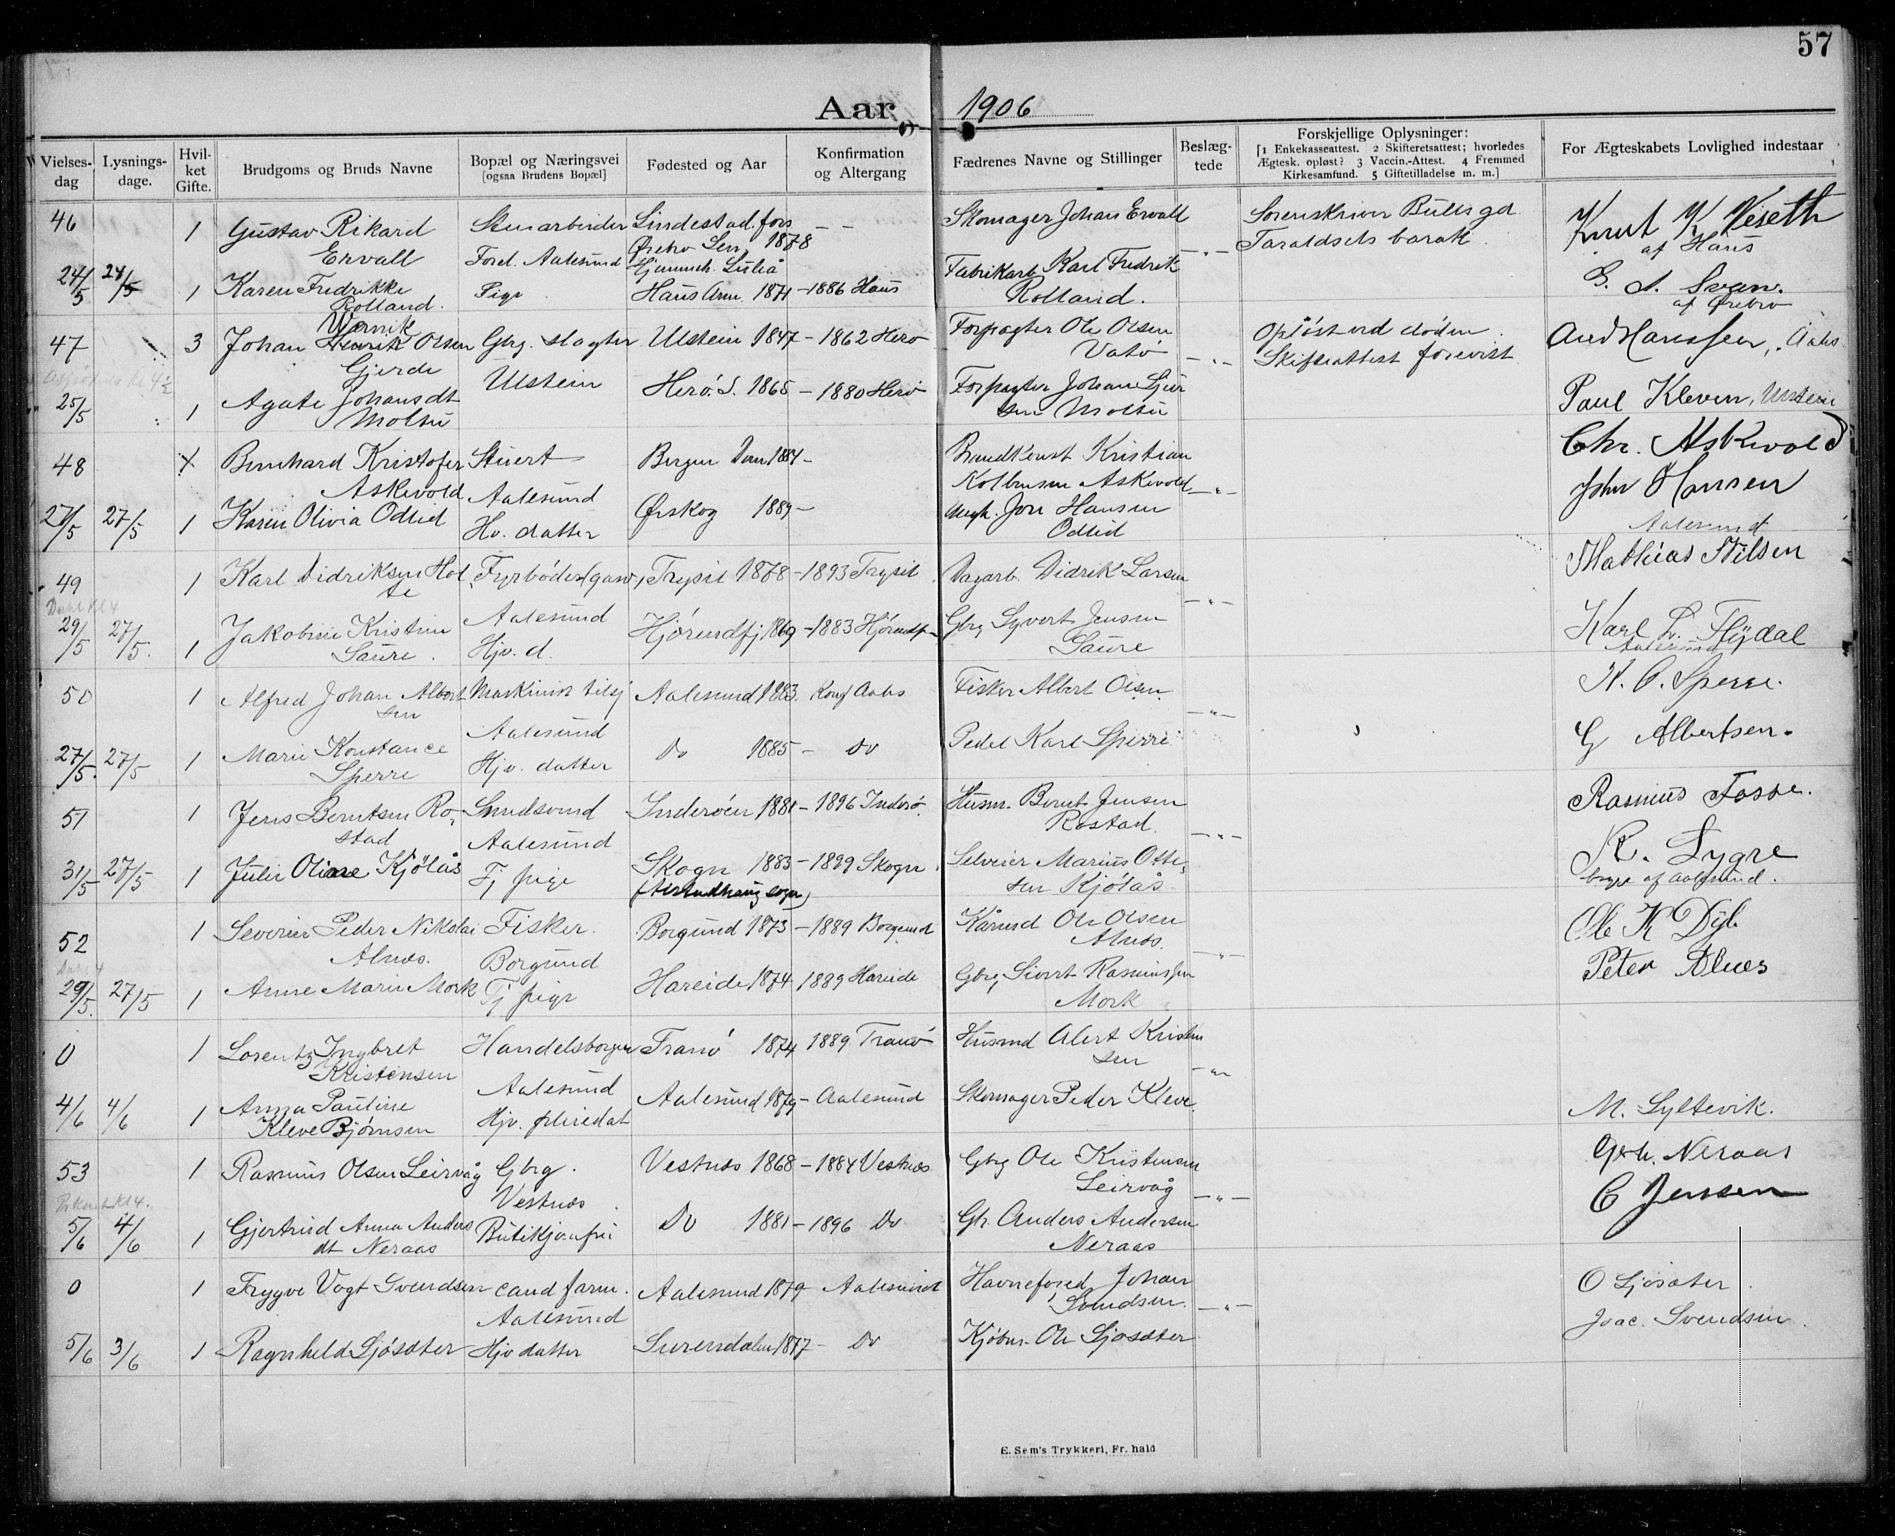 57
Aar 1906
Vielses-dag
Lysnings-dage.
Hvil-ket Gifte.
Brudgoms og Bruds Navne
Bopæl og Næringsvei [ogsaa Brudens Bopæl]
Fødested og Aar
Konfirmation og Altergang
Fædrenes Navne og Stillinger
Beslæg-tede
Forskjellige Oplysninger:
[1 Enkekasseattest. 2 Skifteretsattest; hvorledes
Ægtesk. opløst? 3 Vaccin.-Attest. 4 Fremmed
Kirkesamfund. 5 Giftetilladelse m. m.]
For Ægteskabets Lovlighed indestaar
46 1 Gustav Rikard Stenarbeider Lindestad. fors - - Skomager Johan Ervall Sorenskriver Bulls gd. Knut K. Veseth
Ervall Forel. Aalesund Ørebro Len, 1878 - " - Taraldsets barak. af Haus
24/5 24/5 1 Karen Fredrikke Pige Haus Arn. 1871 - 1886 Haus Fabrikarb Karl Fredrik G. A. Svan.
Rolland. Rolland. af Ørebro
Wernik
47 3 Johan Henrik Olsen Gbrg. slagter Ulstein 1847 - 1862 Herø Forpagter Ole Olsen Opløst ved døden. And Hanssen, Aales
Gjerde Ulstein Vatø - " - Skifteattest forevist
25/5 1 Agate Johansdt Herø. S. 1865 - 1880 Herø Forpagter Johan Sjur Paul Kleven, Ulstein
Moltu sen Moltu
48 1 Bernhard Kristofer Stuert Bergen Dom. 1884 - Brandkonst Kristian Chr. Askevold
Askevold Aalesund Kolbensen Askevold - " - John Hansen
27/5 27/5 1 Karen Olivia Ødlid Hv. datter Ørskog 1889 - Jon Hansen Aalesund
Ødlid
49 1 Karl Didriksen Hol Fyrbøder (gasv, Trysil 1878 - 1893 Trysil Dagarb. Didrik Larsen Mathias Nilsen
te Aalesund - " -
29/5 27/5. 1 Jakobine Kristine Hjv. d. Hjørendfj 1869 - 1883 Hjørendfj. Gbrg Syvert Jensen Karl L. Flydal
Saure. Saure Aalesund
50 1 Alfred Johan Albert Maskinist tilsj Aalesund 1883. Konf Aales Fisker Albert Olsen K. O. Sperre.
sen Aalesund - " -
27/5. 27/5 1 Marie Konstance Hjv. datter Do 1885 - Do Pedel Karl Sperre G Albertsen.
Sperre
51 1 Jens Berntsen Ro- Smedsvend Inderøen 1881 - 1896 Inderø. Husm. Bernt Jensen Rasmus Fosse.
stad Aalesund Rostad. - " -
31/5 27/5 1 Julie Oline Kjølås Tj pige Skogn 1883 - 1899 Skogn. Selveier Marius Otte- R. Lygre
(Alstadhaug sogn) sen Kjølås. af Aalesund.
52 1 Severin Peder Nikolai Fisker. Borgund 1873 - 1889 Borgund Kårmd Ole Olsen Ole K Dyb
Alnæs. Borgund Alnæs. - " - Peter Alnæs
29/5. 27/5 1 Anne Marie Mork Tj pige Hareide 1874 1889 Hareide Gbrg Sivert Rasmussen
Mork
0 1 Lorentz Ingbret Handelsborger Tranø 1874 1889 Tranø Husmd Alert Kristen
Kristensen Aalesund sen - " -
4/6 4/6 1 Anna Pauline Hjv. pleiedat Aalesund 1879 - Aalesund Skomager Peder Kleve. M. Syltevik.
Kleve Bjørnsen
53 1 Rasmus Olsen Leirvåg Gbrg. Vestnæs 1868 - 1884 Vestnæs Gbrg Ole Kristensen Gerh. Neraas
Vestnæs. Leirvåg - " - C Jensen
5/6 4/6 1 Gjertrud Anna Anders Butikjomfru Do 1881 - 1896 Do Gbr. Anders Andersen
dt Neraas Neraas
0 1 Trygve Vogt Svendsen cand farm. Aalesund 1879 Aalesund Havnefoged Johan O Sjøsæter.
Aalesund Svendsen. - " - Joac. Svendsen.
5/6 3/6 1 Ragnhild Sjøsæter Hjv datter Surendalen 1877 - Do Kjøbm. Ole Sjøsæter
E. Sem's Trykkeri, Fr. hald